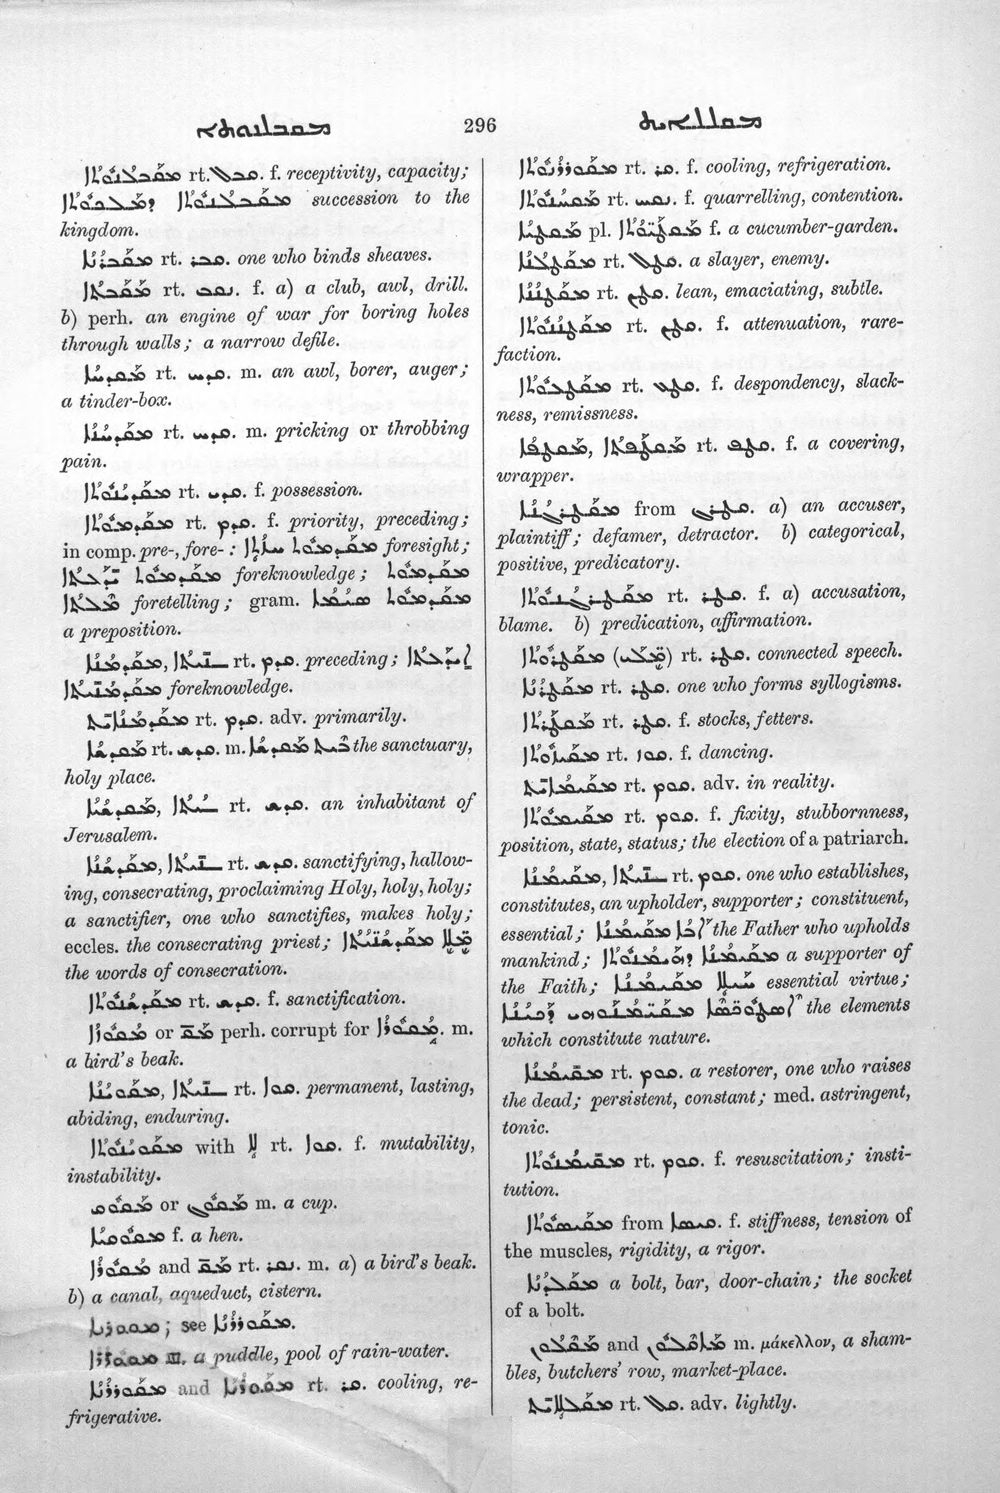 ܡܩܒܠܢܘܬܐ 296 ܡܩܠܠܐܝܬ
ܡܩܒܠܢܘܬܐ rt. ܩܒܠ. f. receptivity, capacity;
ܡܩܒܠܢܘܬܐ ܕܡܠܟܘܬܐ succession to the
kingdom.
ܡܩܒܪܢܐ rt. ܩܒܪ. one who binds sheaves.
ܡܩܒܬܐ rt. ܢܩܒ. f. a) a club, awl, drill.
b) perh. an engine of war for boring holes
through walls; a narrow defile.
ܡܩܕܚܐ rt. ܩܕܚ. m. an awl, borer, auger;
a tinder-box.
ܡܩܕܚܢܐ rt. ܩܕܚ. m. pricking or throbbing
pain.
ܡܩܕܝܢܘܬܐ rt. ܩܕܝ. f. possession.
ܡܩܕܡܘܬܐ rt. ܩܕܡ. f. priority, preceding;
in comp. pre-, fore- : ܡܩܕܡܘܬ ܚܙܬܐ foresight;
ܡܩܕܡܘܬ ܝܕܥܬܐ foreknowledge; ܡܩܕܡܘܬ
foretelling; gram. ܡܩܕܡܘܬ ܣܝܡܐ
a preposition.
ܡܩܕܡܢܐ, ܢܝܬܐ rt. ܩܕܡ. preceding; ܝܕܥܬܐ
ܡܩܕܡܢܝܬܐ foreknowledge.
ܡܩܕܡܢܐܝܬ rt. ܩܕܡ. adv. primarily.
ܡܩܕܫܐ rt. ܩܕܫ. m. ܒܝܬ ܡܩܕܫܐ the sanctuary,
holy place.
ܡܩܕܫܝܐ, ܝܬܐ rt. ܩܕܫ. an inhabitant of
Jerusalem.
ܡܩܕܫܢܐ, ܢܝܬܐ rt. ܩܕܫ. sanctifying, hallow-
ing, consecrating, proclaiming Holy, holy, holy;
a sanctifier, one who sanctifies, makes holy;
eccles. the consecrating priest; ܡ̈ܠܐ ܡܩܕܫܢܝܬܐ
the words of consecration.
ܡܩܕܫܢܘܬܐ rt. ܩܕܫ. f. sanctification.
ܡܩܘܙܐ or perh. corrupt for m.
a bird's beak.
ܡܩܘܝܢܐ, ܢܝܬܐ rt. ܩܘܐ. permanent, lasting,
abiding, enduring.
ܡܩܘܝܢܘܬܐ with ܠܐ rt. ܩܘܐ. f. mutability,
instability.
or m. a cup.
ܡܩܘܩܝܐ f. a hen.
ܡܩܘܪܐ and rt. ܢܩܪ. m. a) a bird's beak.
b) a canal, aqueduct, cistern.
; see ܡܩܘܪܪܢܐ.
III. a puddle, pool of rain-water.
ܡܩܘܪܪܢܐ and rt. ܩܪ. cooling, re-
frigerative.
ܡܩܘܪܪܢܘܬܐ rt. ܩܪ. f. cooling, refrigeration.
rt. f. quarrelling, contention.
ܡܩܛܝܐ pl. f. a cucumber-garden.
ܡܩܛܠܢܐ rt. ܩܛܠ. a slayer, enemy.
ܡܩܛܢܢܐ rt. ܩܛܢ. lean, emaciating, subtle.
ܡܩܛܢܢܘܬܐ rt. ܩܛܢ. f. attenuation, rare-
faction.
rt. f. despondency, slack-
ness, remissness.
ܡܩܛܦܐ, ܡܩܛܦܬܐ rt. ܩܛܦ. f. a covering,
wrapper.
ܡܩܛܪܓܢܐ from ܩܛܪܓ. a) an accuser,
plaintiff; defamer, detractor. b) categorical,
positive, predicatory.
ܡܩܛܪܓܢܘܬܐ rt. ܩܛܪ. f. a) accusation,
blame. b) predication, affirmation.
ܡܩܛܪܘܬܐ rt. ܩܛܪ. connected speech.
ܡܩܛܪܢܐ rt. ܩܛܪ. one who forms syllogisms.
ܡܩܛܪܬܐ rt. ܩܛܪ. f. stocks, fetters.
rt. ܩܘܙ. f. dancing.
ܡܩܝܡܐܝܬ rt. ܩܘܡ. adv. in reality.
ܡܩܝܡܘܬܐ rt. ܩܘܡ. f. fixity, stubbornness,
position, state, status; the election of a patriarch.
ܡܩܝܡܢܐ, ܢܝܬܐ rt. ܩܘܡ. one who establishes,
constitutes, an upholder, supporter; constituent,
essential; ܐܒܐ ܡܩܝܡܢܐ the Father who upholds
mankind; ܡܩܝܡܢܐ ܕܗܝܡܢܘܬܐ a supporter of
the Faith; ܚܝܠܐ ܡܩܝܡܢܐ essential virtue;
ܐܣܛܘܟܣܐ ܡܩܝܡܢܘܗܝ ܕܟܝܢܐ the elements
which constitute nature.
ܡܩܝܡܢܐ rt. ܩܘܡ. a restorer, one who raises
the dead; persistent, constant; med. astringent,
tonic.
ܡܩܝܡܢܘܬܐ rt. ܩܘܡ. f. resuscitation; insti-
tution.
ܡܩܝܣܘܬܐ from ܩܝܣܐ. f. stiffness, tension of
the muscles, rigidity, a rigor.
ܡܩܠܕܢܐ a bolt, bar, door-chain; the socket
of a bolt.
and m. μάκελλον, a sham-
bles, butchers' row, market-place.
ܡܩܠܠܐܝܬ rt. ܩܠ. adv. lightly.